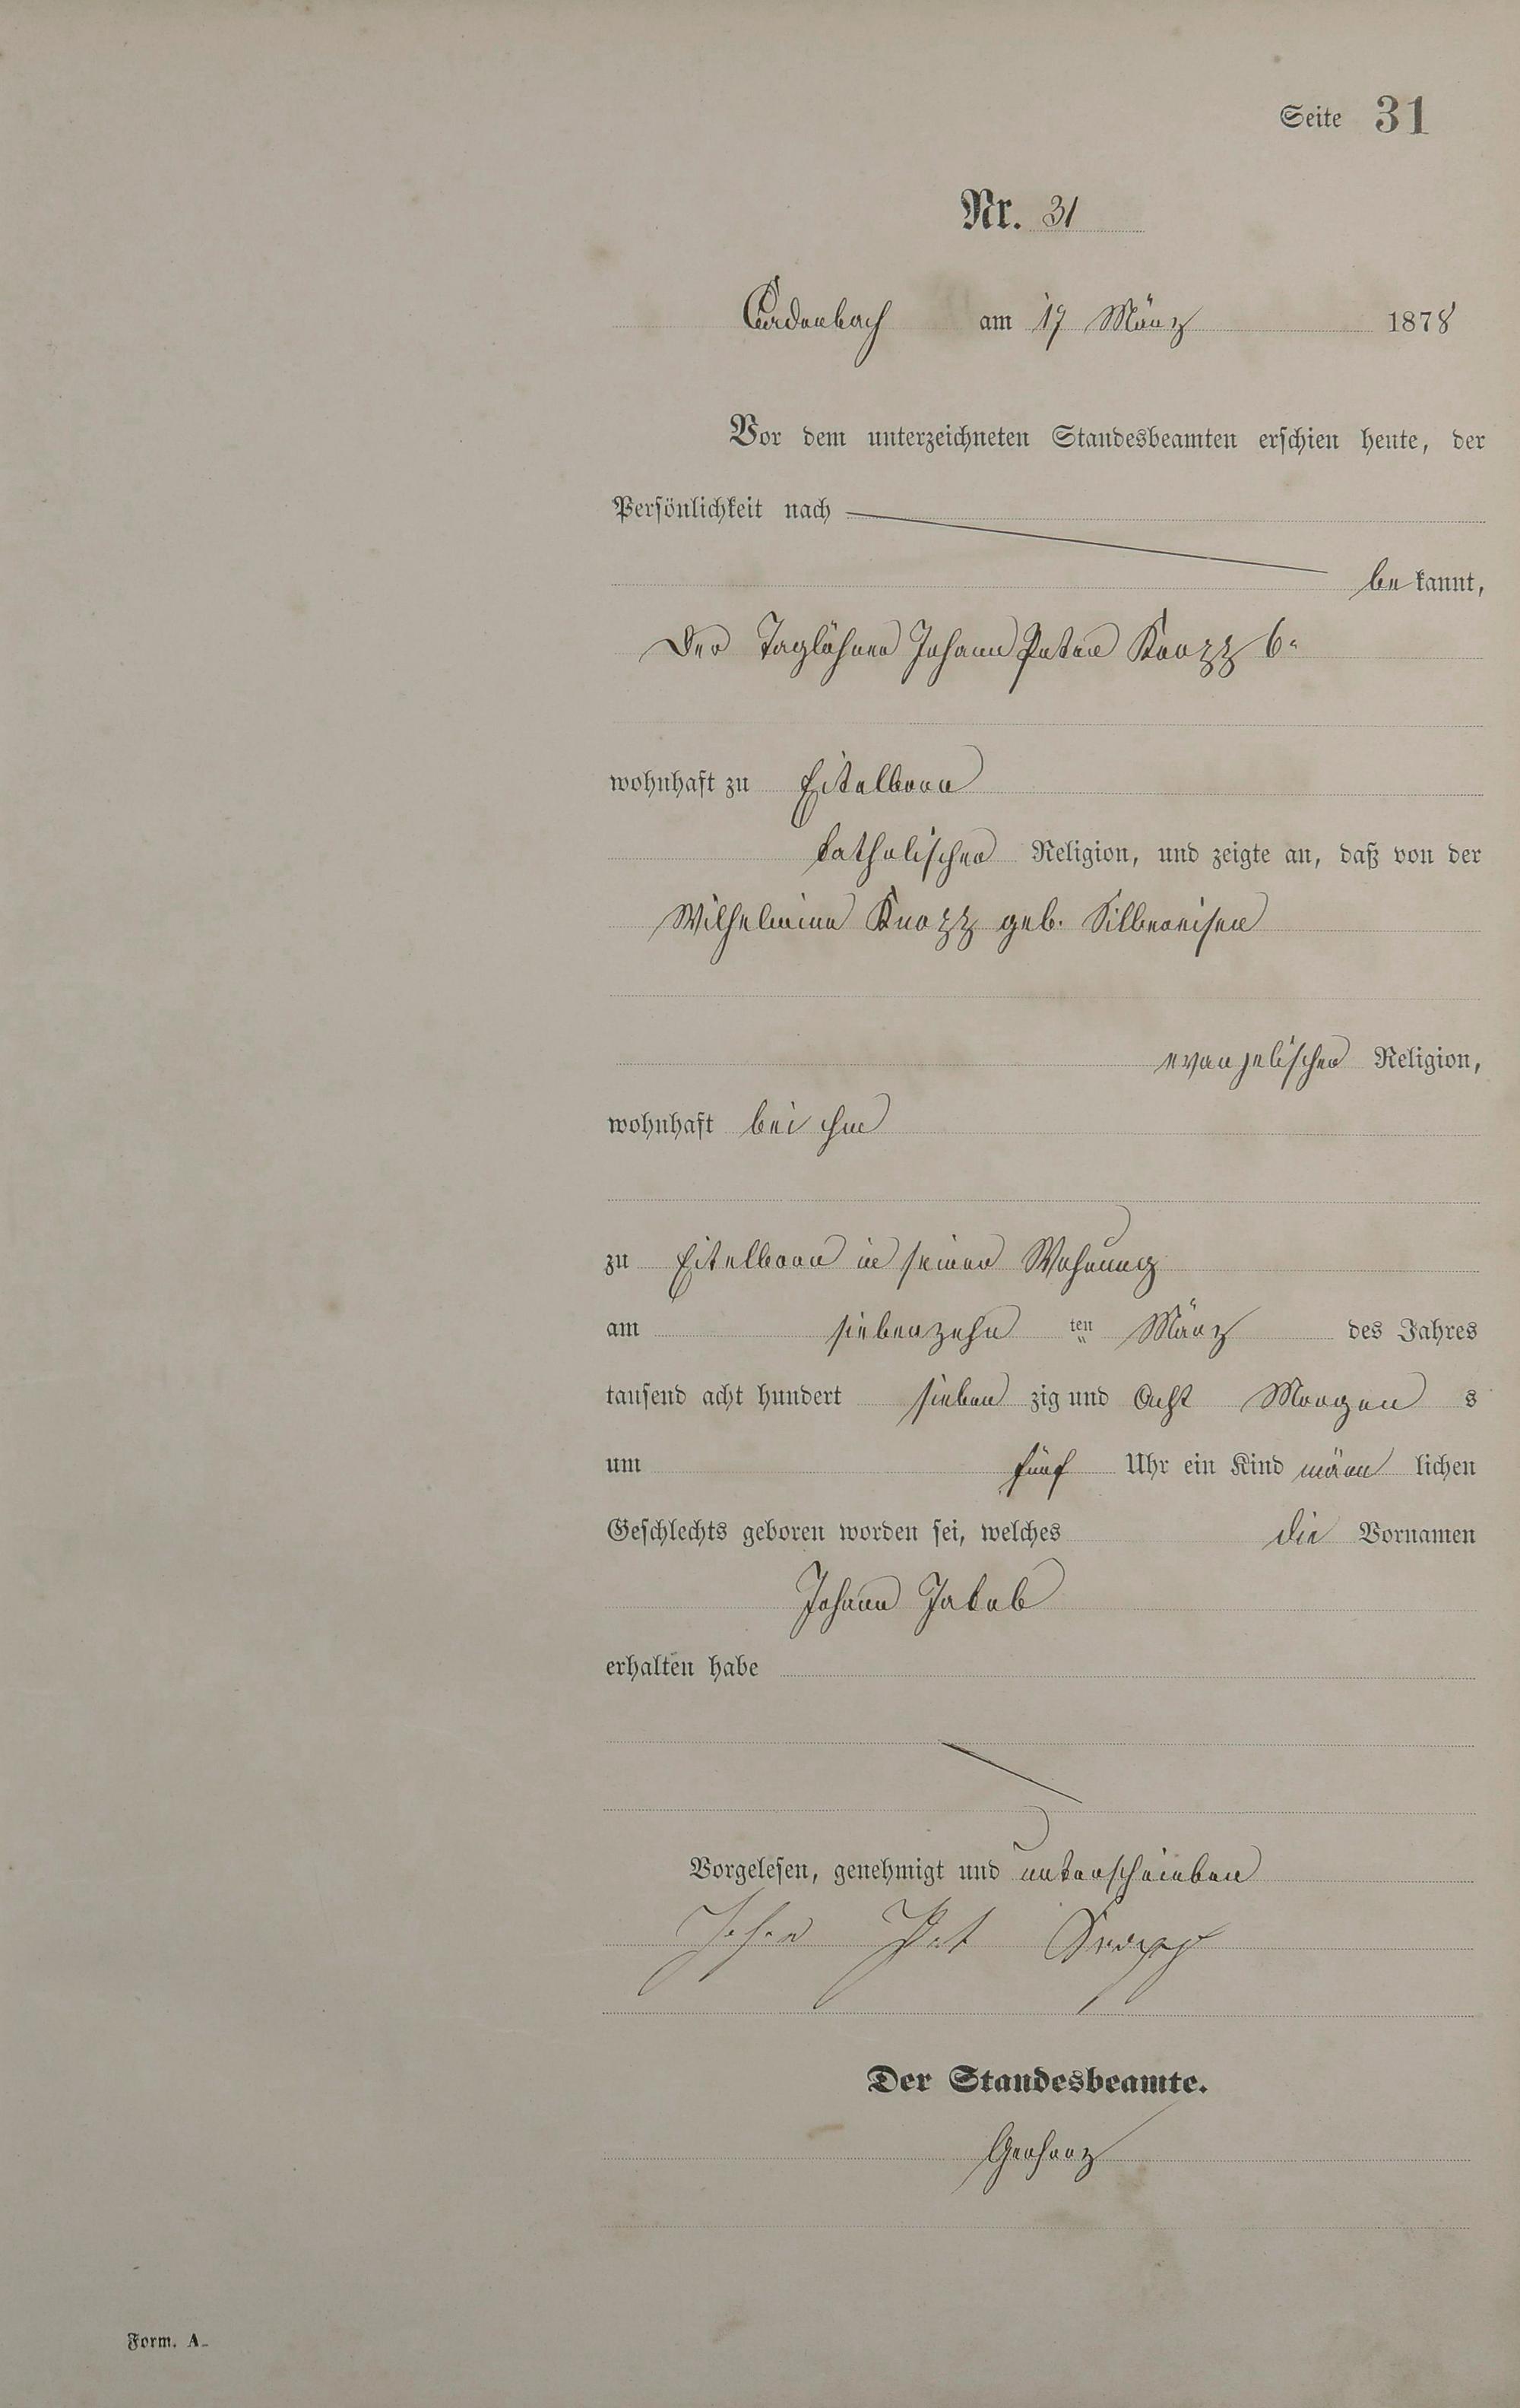 Seite 31
Nr. 31
Cadenbach am 17 März 1878
Vor dem unterzeichneten Standesbeamten erschien heute, der
Persönlichkeit nach
be kannt,
Der Taglöhner Johann Peter Knopp 6r
wohnhaft zu Eitelborn
katholischer Religion, und zeigte an, daß von der
Wilhelmine Knopp geb. Silbereisen
evangelischer Religion,
wohnhaft bei ihm
zu Eitelborn in seiner Wohnung
am siebenzehn ten März des Jahres
tausend acht hundert sieben zig und Acht Morgen s
um fünf Uhr ein Kind männ lichen
Geschlechts geboren worden sei, welches die Vornamen
Johann Jakob
erhalten habe
Vorgelesen, genehmigt und unterschrieben
Johann Pet Knopp
Der Standesbeamte.
Gerharz
Form. A.